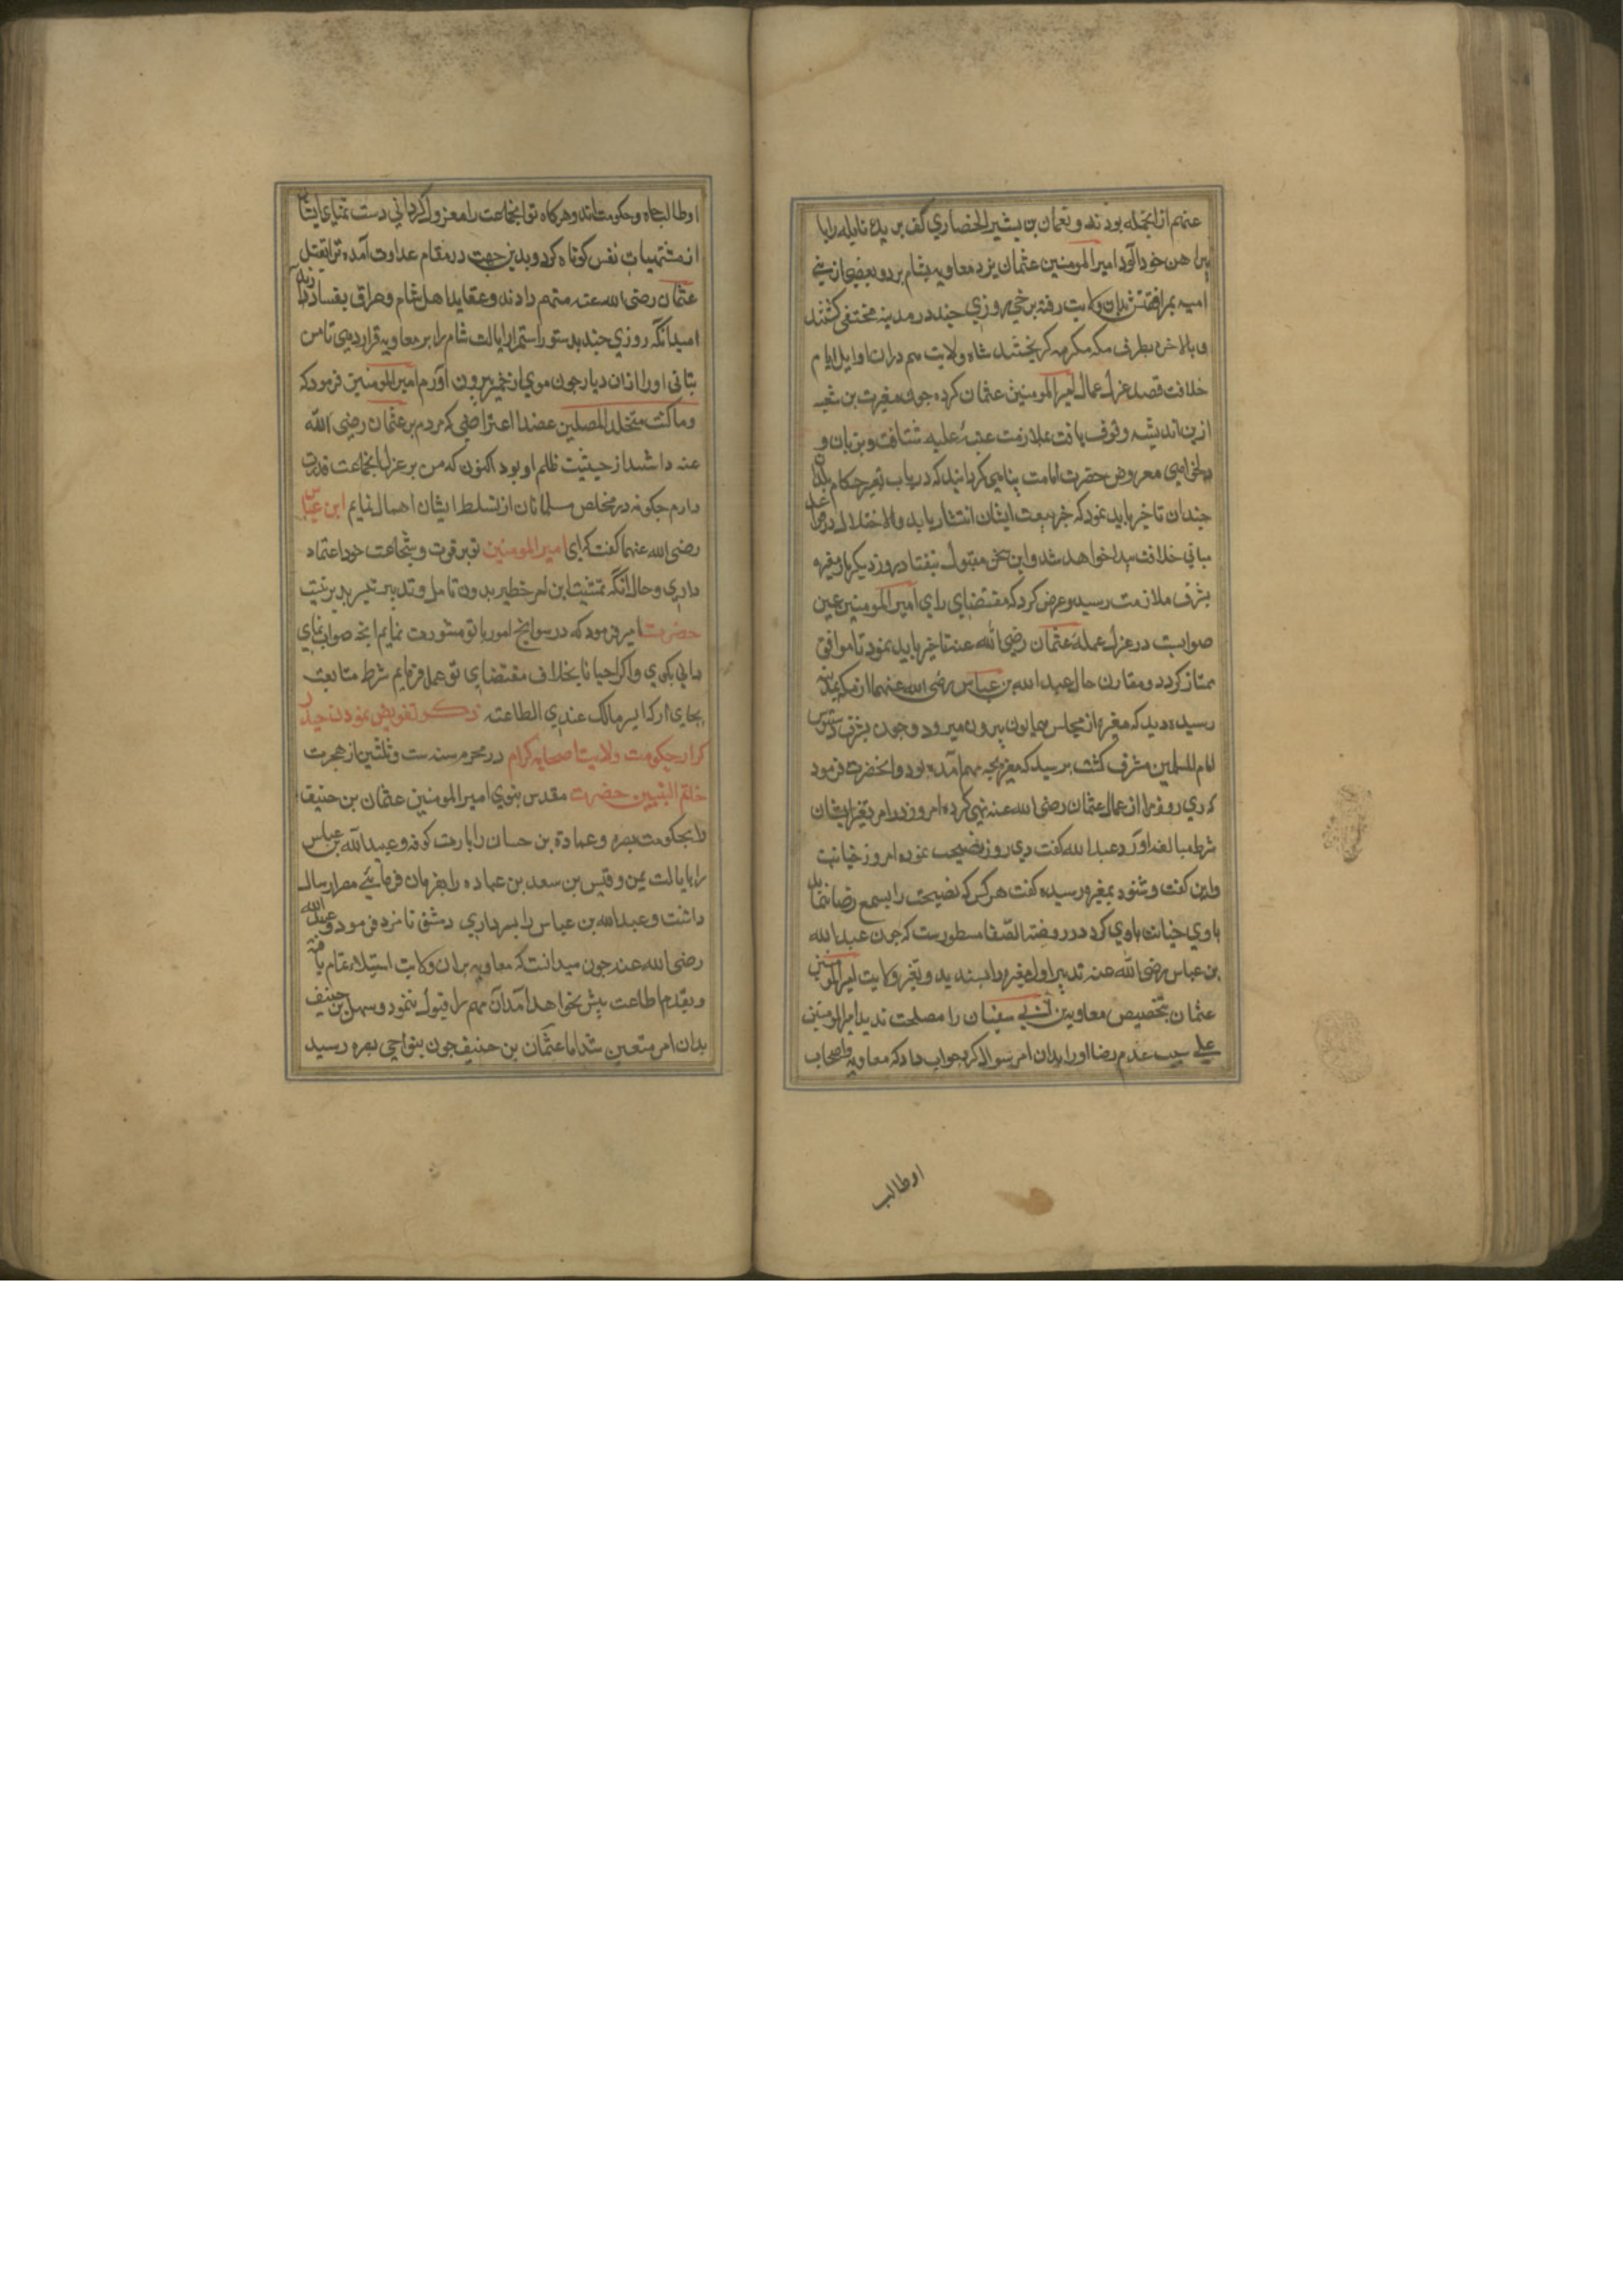 عنهم ازانجمله بودند و نعمان بن بشیر الانصاری کف بریده نایله را با
پیراهن خون آلود امیر المومنین عثمان نزد معاویه بشام برد و بعضی از بنی
امیه بمرافقتش بدان ولایت رفته برخی روزی چند در مدینه مختفی کشتند
و بالاخره بطرف مکه مکرمه کریختند شاه ولایت هم دران اوایل ایام
خلافت قصد عزل عمال امیر المومنین عثمان کرده چون مغیرت بن شعبه
ازین اندیشه وقوف یافت بملازمت عتبهٔ علیه شتافت و بزبان
معروض حضرت امامت پناهی کردانید که در باب تغیر حکام بلاد
چندان تاخیر باید نمود که خبر بیعت ایشان انتشار یابد والا اختلال در
مبانی خلافت پیدا خواهد شد و این سخن مقبول نیفتاد روز دیکر باز مغیره
بشرف ملازمت رسید و عرض کرد که مقتضای رای امیر المومنین عین
صوابست در عزل عملهٔ عثمان رضی الله عنه تاخیر باید نمود تا موافق
ممتاز کردد و مقارن حال عبدالله بن عباس رضی الله عنهما از مکه بمدینه
رسیده دید که مغیره از مجلس همایون بیرون میرود و چون بشرف دستبوس
امام المسلمین مشرف کشت پرسید که مغیره بچه مهم آمده بود و انحضرت فرمود
که دی روز مرا از عمال عثمان رضی الله عنه نهی کرده امروز در امر تغیر ایشان
شرط مبالغه اورد عبدالله کفت دی روز نصیحت نموده امروز خیانت
و این کفت و شنود بمغیره رسیده کفت هر کس که نصیحت را بسمع رضا نشنود
با وی خیانت باوی کرد در روضة الصفا مسطورست که چون عبدالله
بن عباس رضی الله عنه تدبیر اول مغیره را پسندید و تغیر ولایت امیر المومنین
عثمان بتخصیص معاویة بن ابی سفیان را مصلحت ندید امیر المومنین
علی سبب عدم رضا اورا بدان امر سوال کرد جواب داد که معاویه و اصحاب
او طالب
او طالب جاه و حکومت‌اند و هرکاه تو انجماعت را معزول کردانی دست تمنای ایشان
از مشتهیات نفس کوتاه کردد و بدین جهت در مقام عداوت آمده ترا بقتل
عثمان رضی الله عنه متهم دارند و عقاید اهل شام و عراق بفساد
امید انکه روزی چند بدستور استمرار ایالت شام را بر معاویه قرار دهی تا من
بتانی اورا ازان دیار چون موی از خمیر بیرون آورم امیر المومنین فرمود که
وما کنت متخذ المضلین عضدا اعتراضی که مردم بر عثمان رضی الله
عنه داشتند از حیثیت ظلم او بود اکنون که من بر عزل انجماعت قدرت
دارم چکونه در مخلص مسلمانان از تسلط ایشان اهمال نمایم ابن عباس
رضی الله عنهما کفت که ای امیر المومنین تو بر قوت و شجاعت خود اعتماد
داری و حال آنکه تمشیت این امر خطیر بدون تامل و تدبیر تیسر پذیر نیست
حضرت امیر فرمود که در سوانح امور با تو مشورت نمایم انچه صواب نمای
دانی بکوی و اکر احیانا بخلاف مقتضای تو عمل فرمایم شرط متابعت
بجای ار که ایسر مالک عندی الطاعة ذکر تفویض نمودن حیدر
کرار حکومت ولایت اصحابه کرام در محرم سنه ست و ثلثین از هجرت
خاتم النبیین حضرت مقدس نبوی امیر المومنین عثمان بن حنیف
را بحکومت بصره و عمارة بن حسان را بامارت کوفه و عبدالله بن عباس
را بایالت یمن و قیس بن سعد بن عباده را بفرمان فرمائی مصر ارسال
داشت و عبدالله بن عباس را بسرداری دمشق نامزد فرمود و عبدالله
رضی الله عنه چون میدانست که معاویه بران ولایت استیلاء تمام یافته
و بقدم اطاعت پیش نخواهد آمد آن مهم را قبول ننمود و سهل بن حنیف
بدان امر متعین شد اما عثمان بن حنیف چون بنواحی بصره رسید